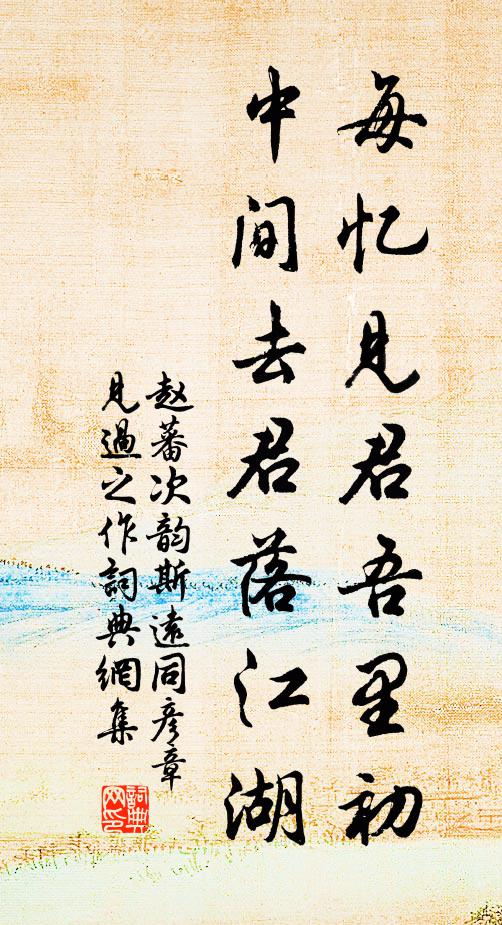 每忆见君吾里初
中间去君落江湖
赵蕃次韵斯遠同彦章
見過之作詞典網集
詞典
网印